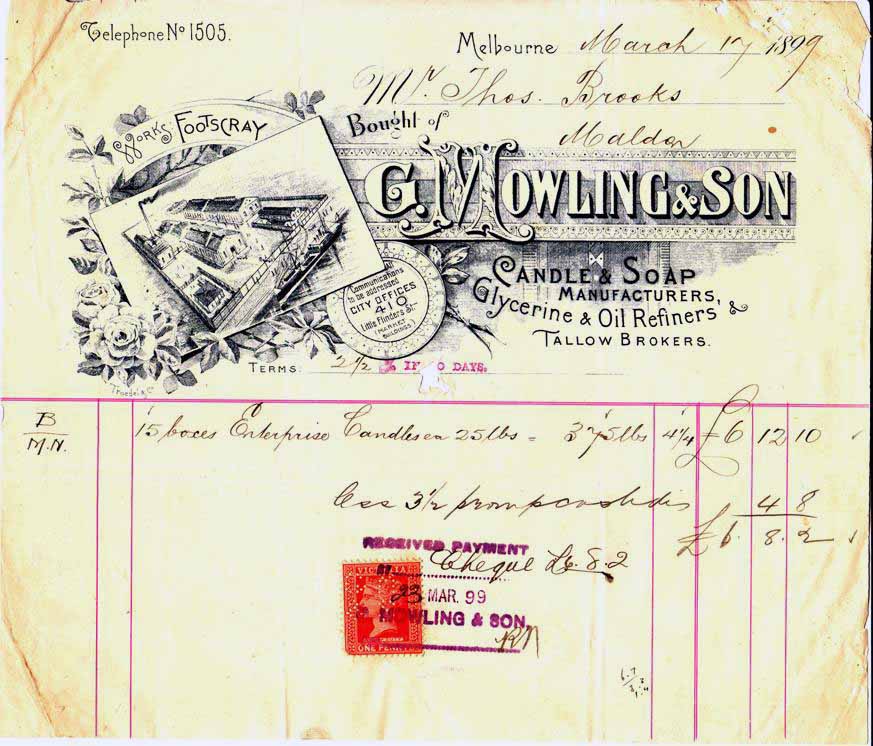 Telephone No 1505.
Melbourne March 17 1899
Mr. Thos. Brooks
Maldon
Works Footscray
Bought of
G. Mowling & Son
Candle & Soap
Manufacturers,
Glycerine & Oil Refiners &
Tallow Brokers.
Communications
to be addressed
City Offices
410
Little Flinders St.
(Market
Buildings)
Terms. 2 1/2 % IN 30 DAYS.
Troedel & Co
B
M.N.
15 boxes Enterprise Candles ea 25 lbs = 375 lbs 4 1/4 £6 12 10
Less 3 1/2 prompt cash dis 4 8
£6. 8. 2
RECEIVED PAYMENT
BY Cheque £6.8.2
23 MAR. 99
G. MOWLING & SON.
VICTORIA
ONE PENNY